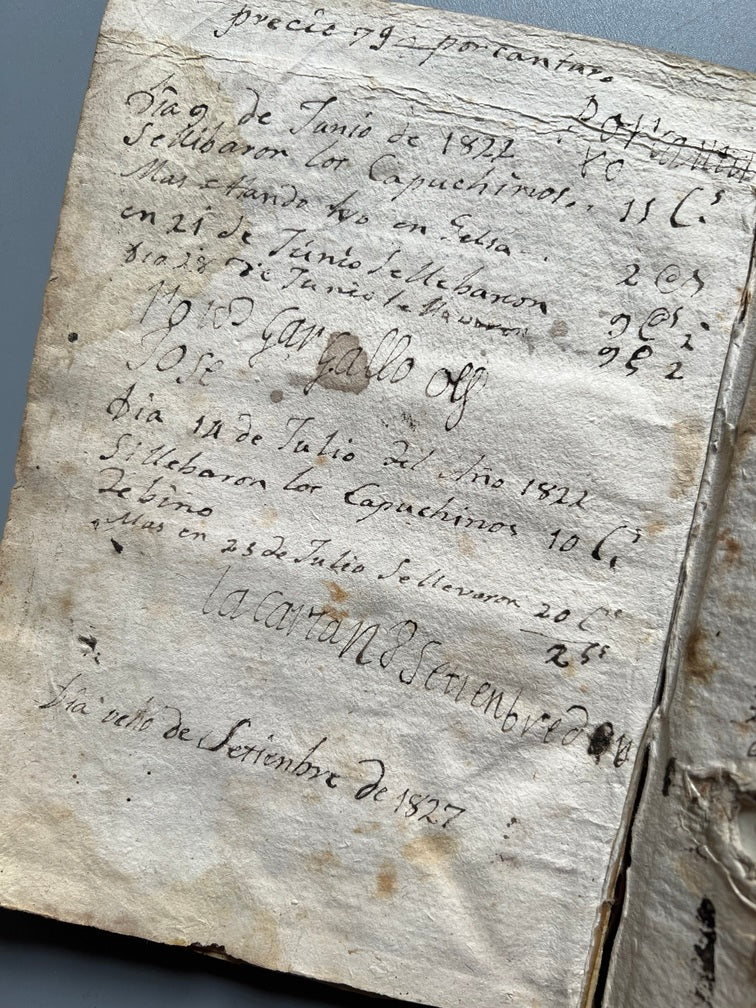 precio 79 por cantaro
Dia 9 de Junio de 1822
Sellibaron los Capuchinos.. 15 C.s
Mas en Gelsa.. 2 @s
en 21 de Junio Sellebaron 9 @s 2
Dia 28 de Junio 9 2
Gargallo
Jose
Dia 14 de Julio del Año 1822
Sillebaron los Capuchinos 10 C.s
debino
Mas en 23 de Julio Sellevaron 20 C.s
la carta 8 Setienbre
Dia ocho de Setienbre de 1827